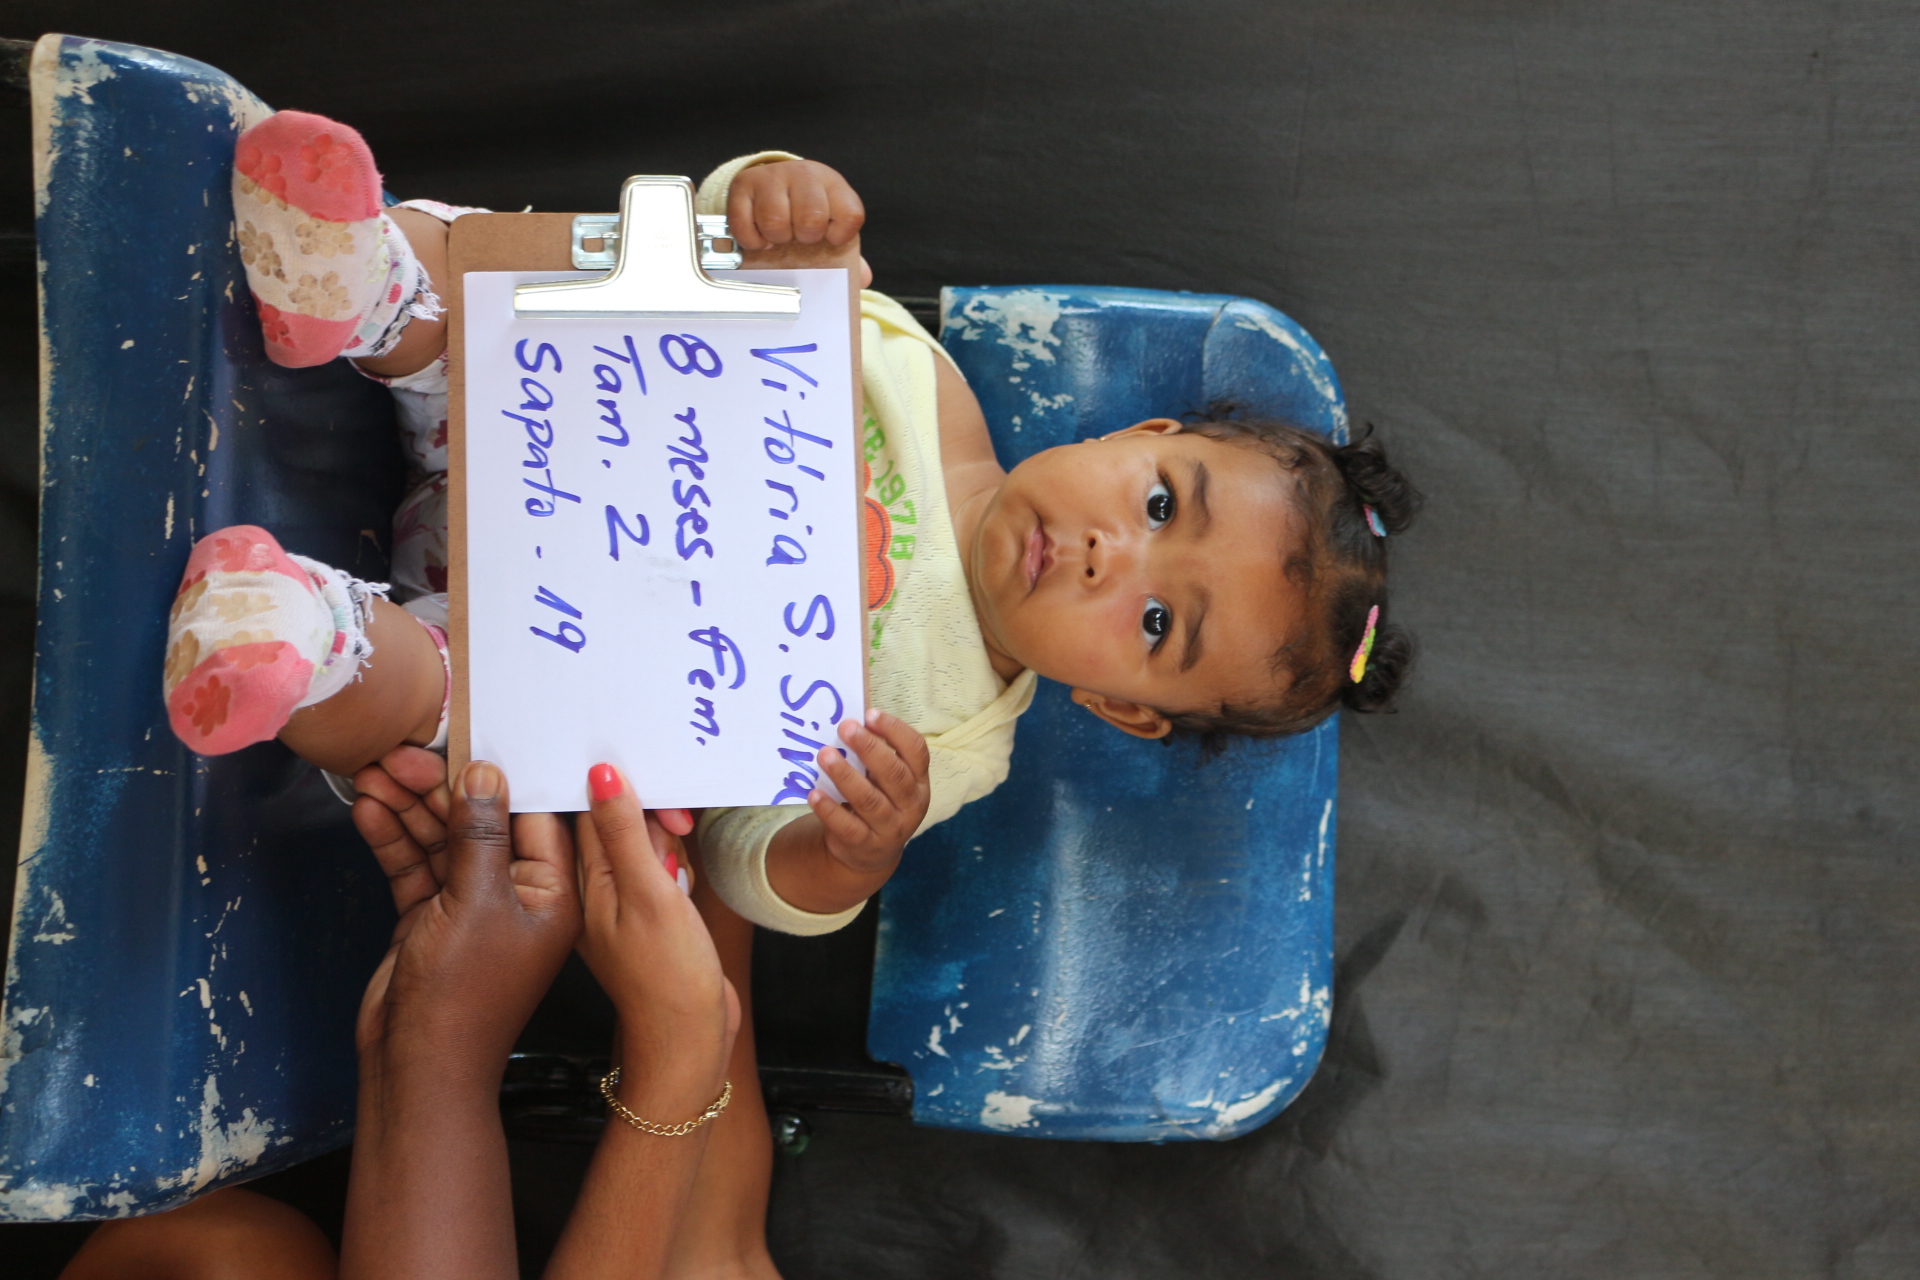 1978
Vitória S. Silva
8 meses - Fem.
Tam. 2
sapato - 19